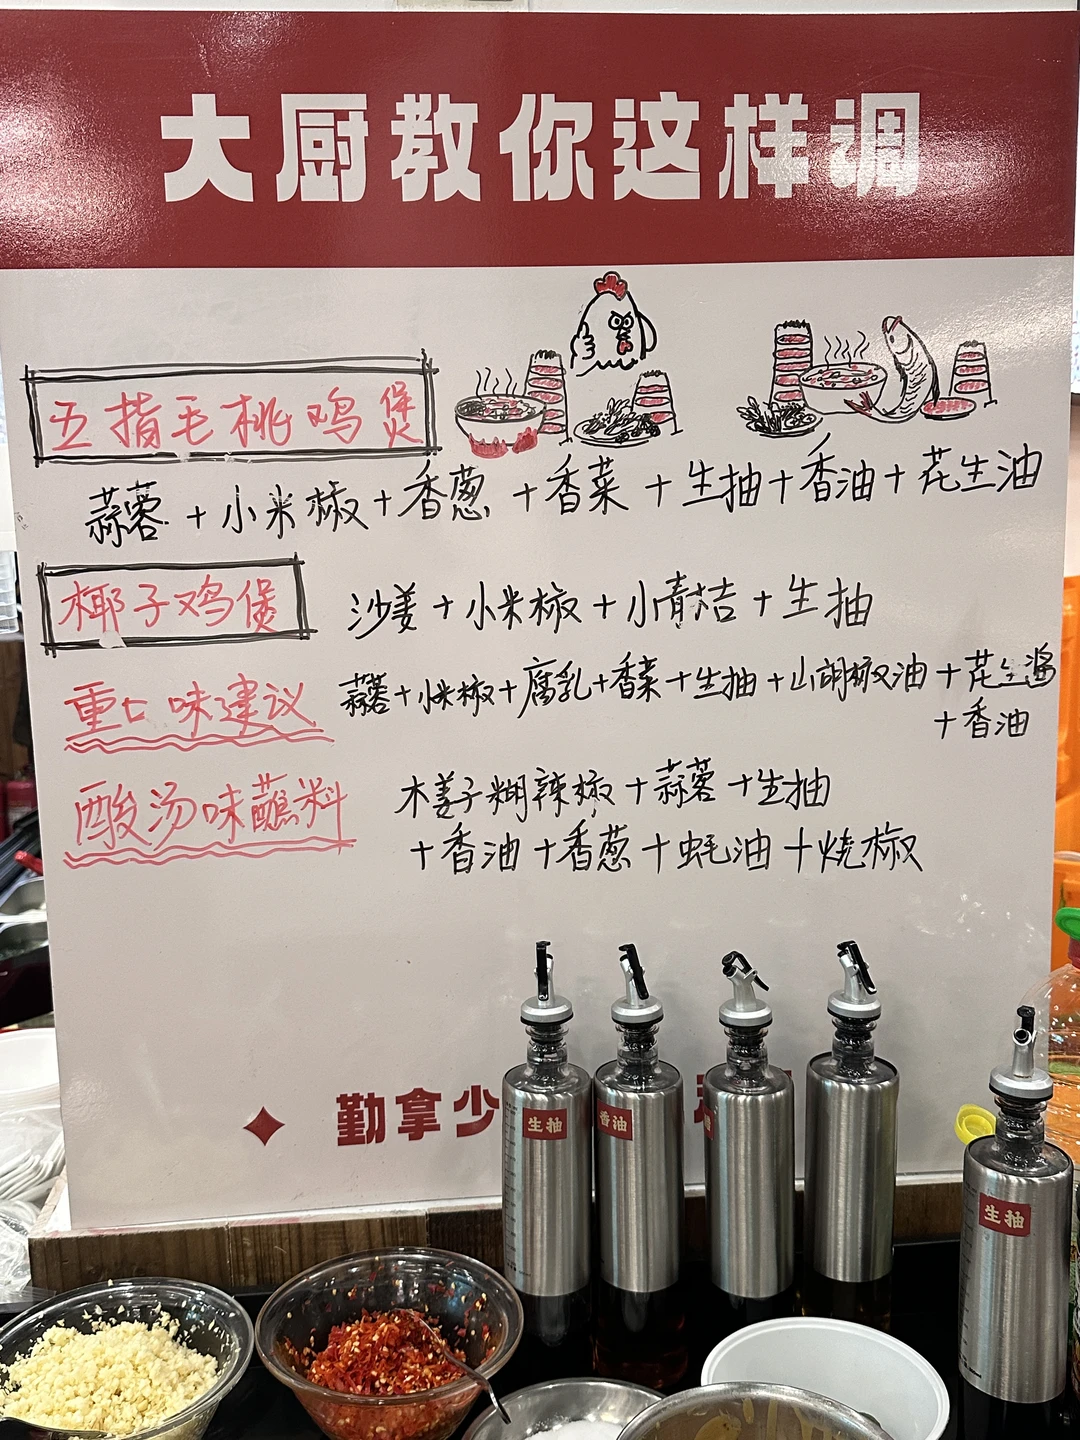 大厨教你这样调
五指毛桃鸡煲
蒜蓉+小米椒+香葱+香菜+生抽+香油+花生油
椰子鸡煲
沙姜+小米椒+小青桔+生抽
重口味建议
蒜蓉+小米椒+腐乳+香菜+生抽+山胡椒油+花生酱
+香油
酸汤味蘸料
木姜子糊辣椒+蒜蓉+生抽
+香油+香葱+蚝油+烧椒
勤拿少
生抽
香油
生抽